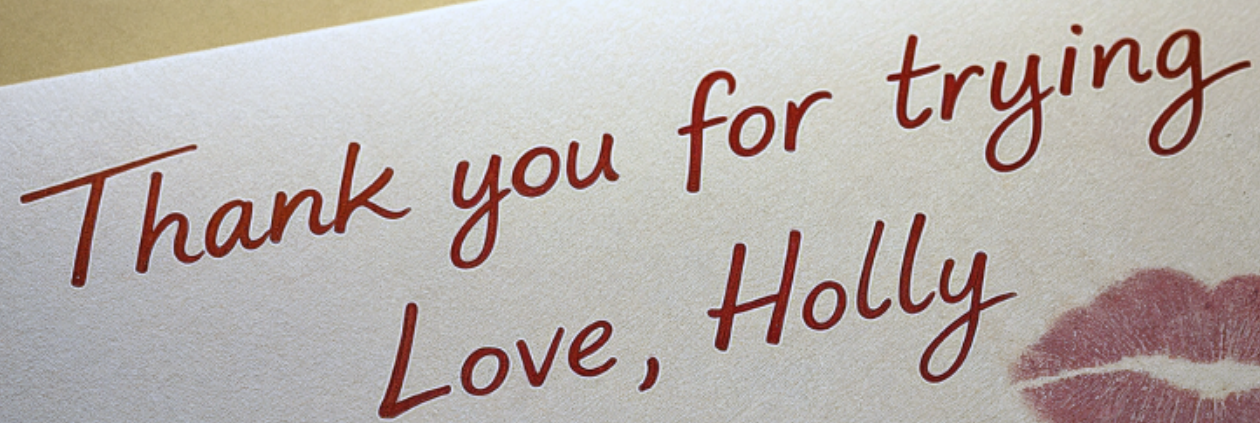 Thank you for trying
Love, Holly